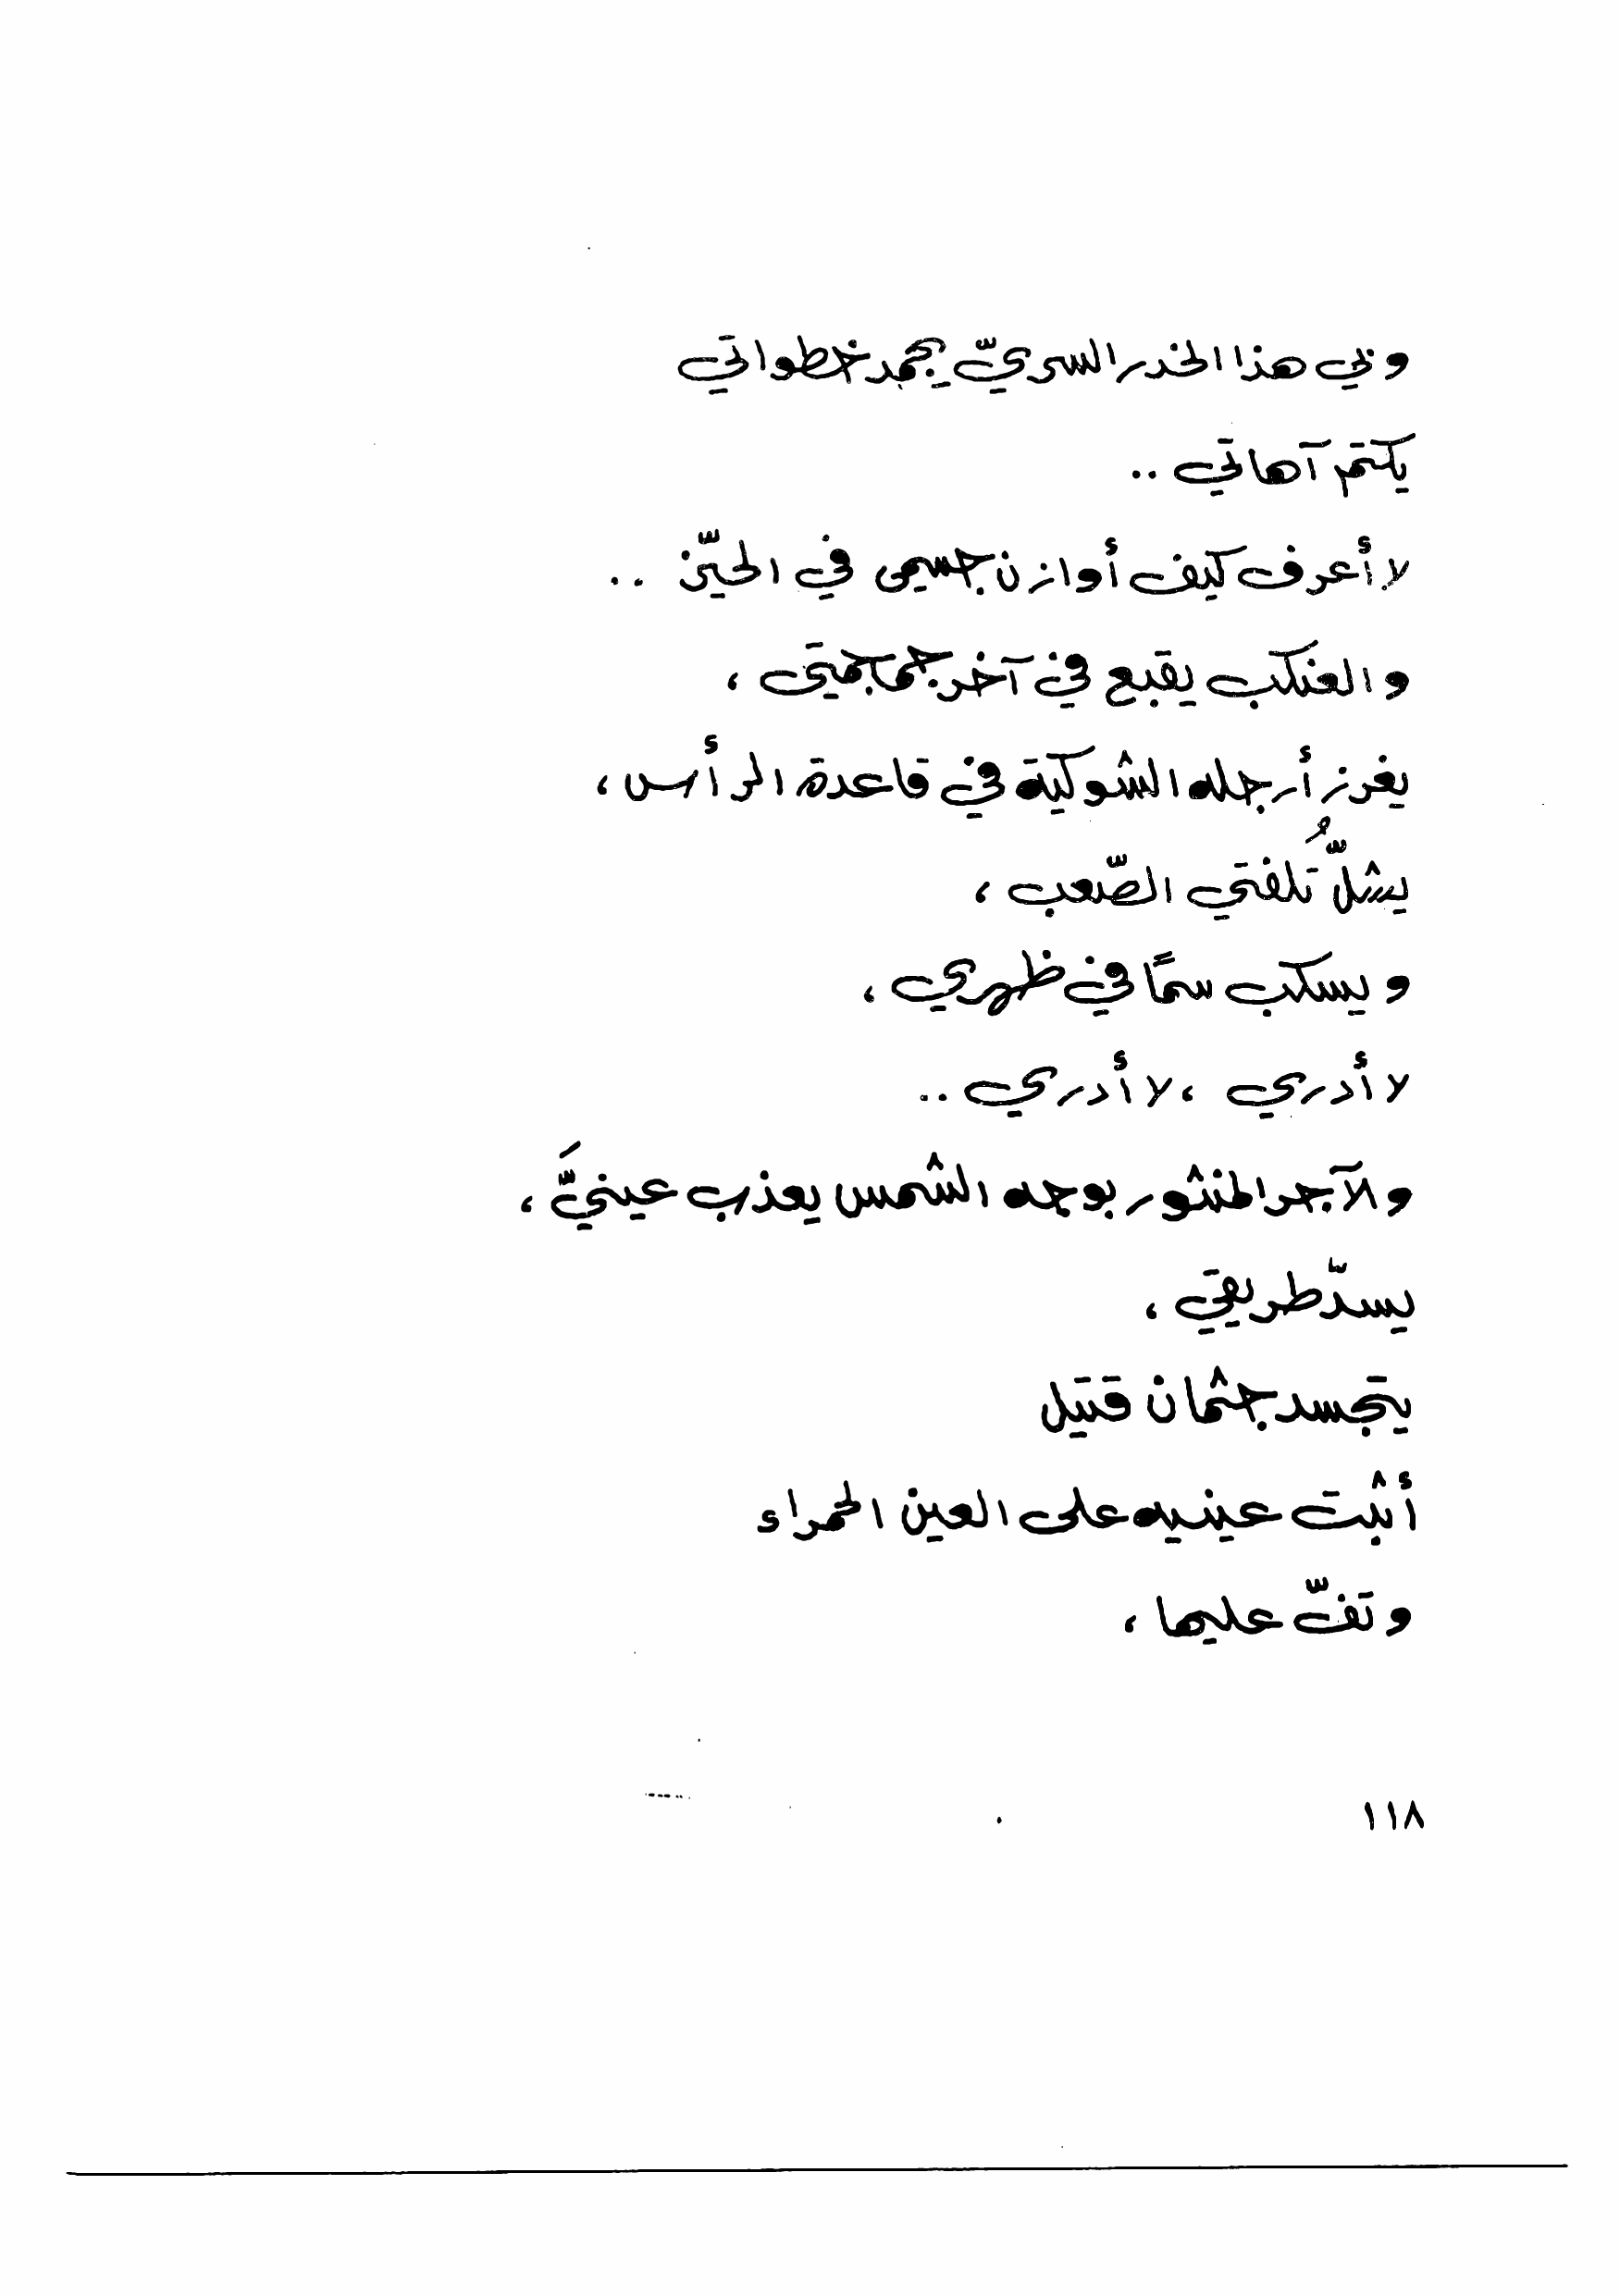 وبي هذا الخدر السريّ يجمد خطواتي
يكتم آهاتي ..
لا أعرف كيف أوازن جسمي في الحيّز ..
والعنكب يقبع في آخر جمجمتي ،
يغرز أرجله الشوكية في قاعدة الرأس ،
يشلّ تُلفتي الصّعب ،
ويسكب سمًا في ظهري ،
لا أدري ، لا أدري ..
والآجر المنثور بوجه الشمس يعذب عينيَّ ،
يسدّ طريقي ،
يتجسد جثمان قتيل
أثبت عينيه على العين الحمراء
وتفّ عليها ،
١١٨